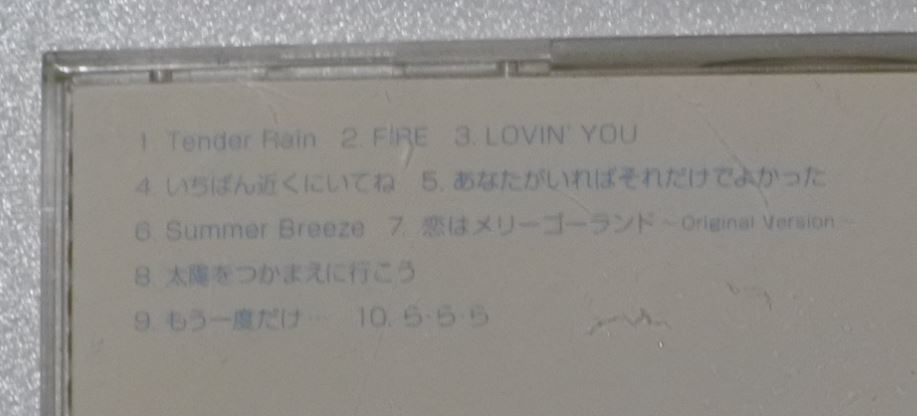 1. Tender Rain 2. FIRE 3. LOVIN' YOU
4. いちばん近くにいてね 5. あなたがいればそれだけでよかった
6. Summer Breeze 7. 恋はメリーゴーランド〜Original Version〜
8. 太陽をつかまえに行こう
9. もう一度だけ… 10. ら・ら・ら